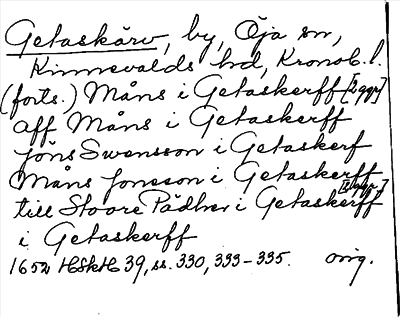 Getaskärv, by, Öja sn,
Kinnevalds hd, Kronob. l.
(forts.) Måns i Getaskerff [2 ggr]
aff Måns i Getaskerff
jöns Swensson i Getaskerf
Måns Jonsson i Getaskerff
till Stoore Pädher i Getaskerff [2 ggr]
i Getaskerff
1652 HSkH 39, ss. 330, 333-335. orig.